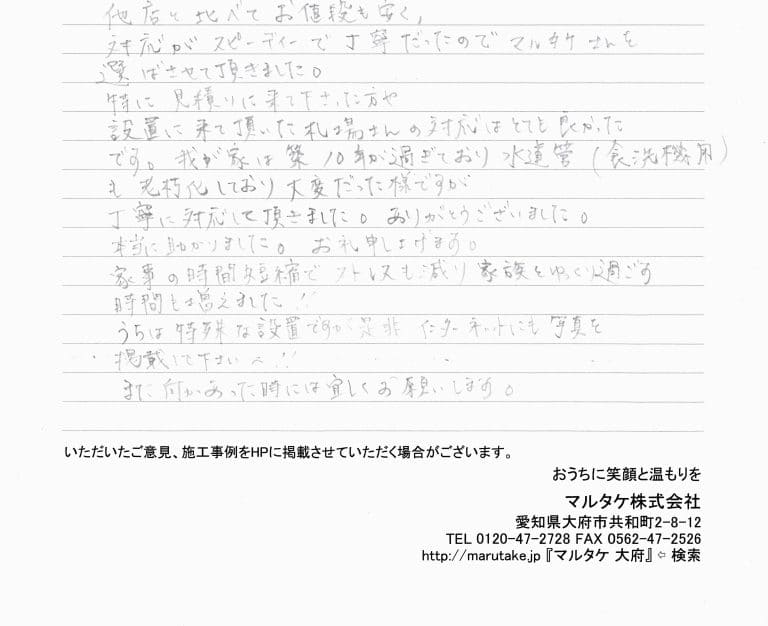 他店と比べてお値段も安く、
対応がスピーディーで丁寧だったのでマルタケさんを
選ばさせて頂きました。
特に見積りに来て下さった方や
設置に来て頂いた札場さんの対応はとても良かった
です。我が家は築10年が過ぎており水道管(食洗機用)
も老朽化しており大変だった様ですが
丁寧に対応して頂きました。ありがとうございました。
本当に助かりました。お礼申し上げます。
家事の時間短縮でストレスも減り家族とゆっくり過ごす
時間も増えました!!
うちは特殊な設置ですが是非インターネットにも写真を
掲載して下さい!!
また何かあった時には宜しくお願いします。
いただいたご意見、施工事例をHPに掲載させていただく場合がございます。
おうちに笑顔と温もりを
マルタケ株式会社
愛知県大府市共和町2-8-12
TEL 0120-47-2728 FAX 0562-47-2526
http://marutake.jp『マルタケ 大府』⇦検索